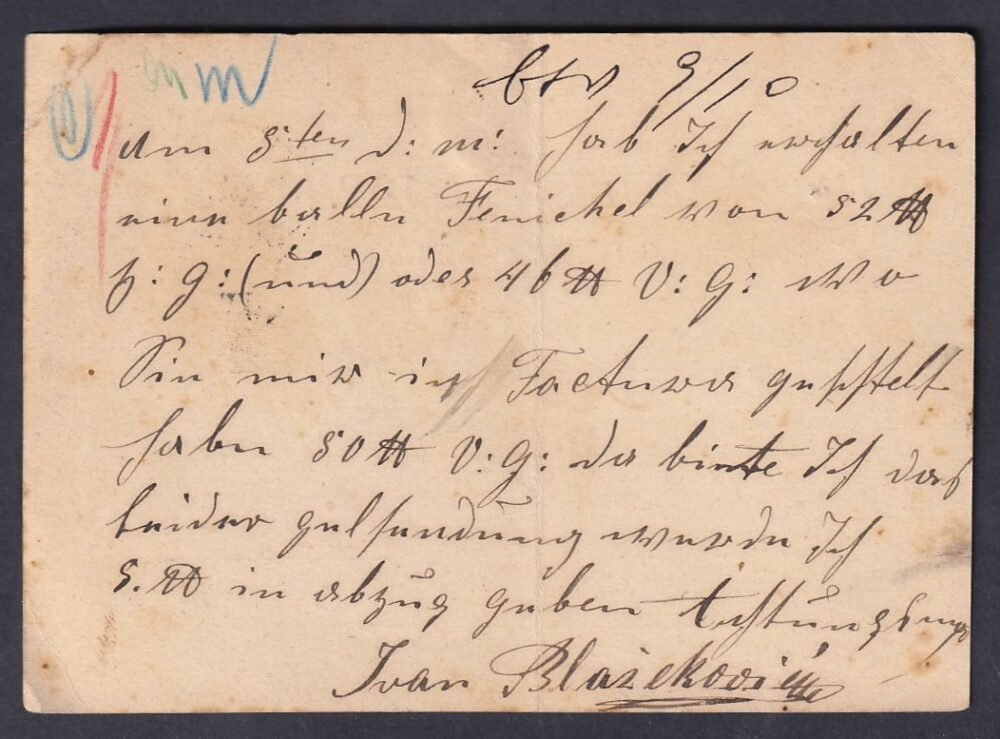 9/10
Am 5ten d: M: hab Ich erhalten
eine balle Fenichel von 52 ℔
b: g: (und) oder 46 ℔ N: G: wo
Sie mir in Factura gestellt
haben 50 ℔ N: G: da bitte Ich das
beider geldsendung werde Ich
5. ℔ in abzug geben Achtungsvoll
Ivan Blažeković